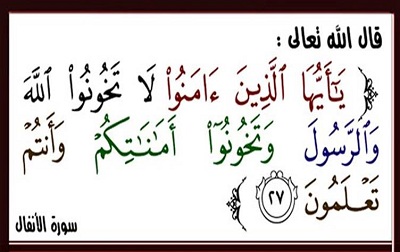 قال الله تعالى :
﴿ يَٰٓأَيُّهَا ٱلَّذِينَ ءَامَنُوا۟ لَا تَخُونُوا۟ ٱللَّهَ
وَٱلرَّسُولَ وَتَخُونُوٓا۟ أَمَٰنَٰتِكُمْ وَأَنتُمْ
تَعْلَمُونَ ٢٧ ﴾
سورة الأنفال